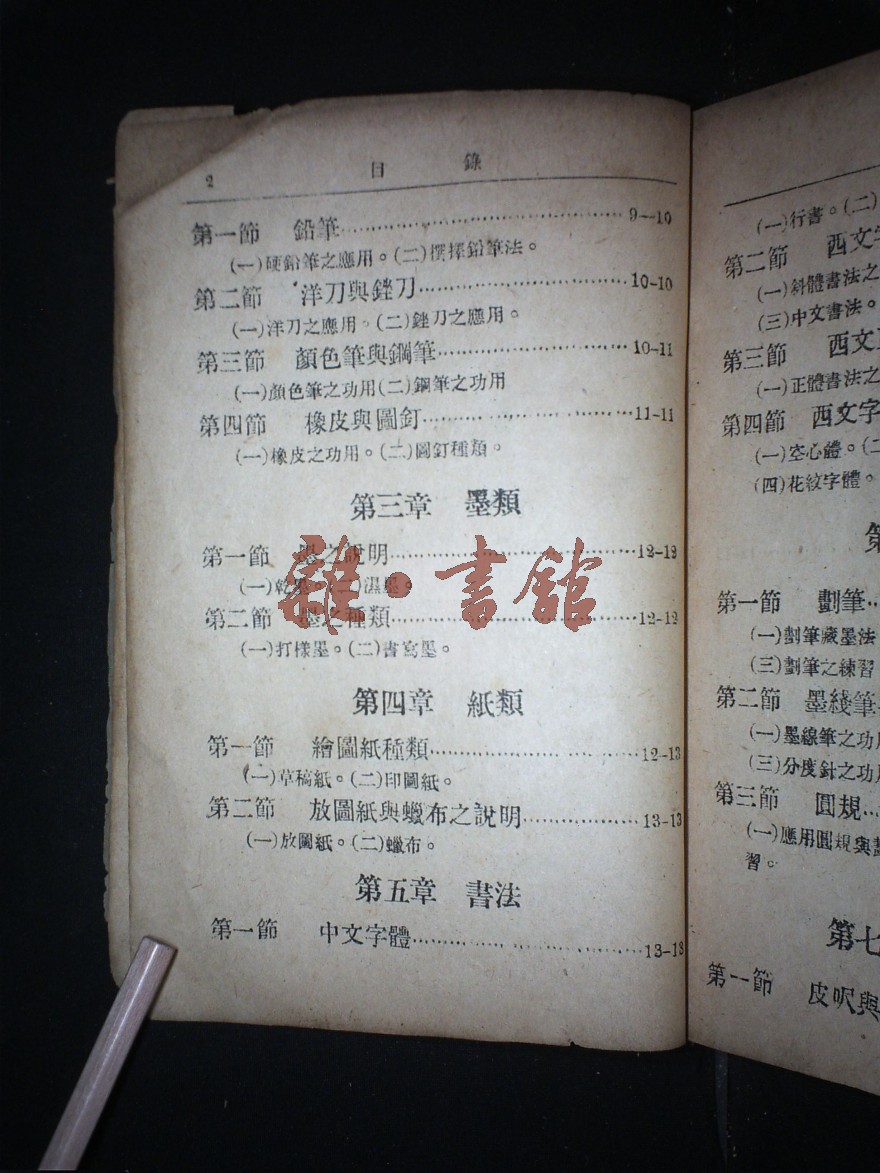 2 目錄
第一節 鉛筆……9—10
(一)硬鉛筆之應用。(二)撰擇鉛筆法。
第二節 洋刀與銼刀……10-10
(一)洋刀之應用。(二)銼刀之應用。
第三節 顏色筆與鋼筆……10-11
(一)顏色筆之功用(二)鋼筆之功用
第四節 橡皮與圖釘……11-11
(一)橡皮之功用。(二)圖釘種類。
第三章 墨類
第一節 墨之說明……12-12
(一)乾墨。(二)濕墨。
第二節 墨之種類……12-12
(一)打樣墨。(二)書寫墨。
雜·書館
第四章 紙類
第一節 繪圖紙種類……12-13
(一)草稿紙。(二)印圖紙。
第二節 放圖紙與蠟布之說明……13-13
(一)放圖紙。(二)蠟布。
第五章 書法
第一節 中文字體……13-13
(一)行書。(二)
第二節 西文字
(一)斜體書法之
(三)中文書法。
第三節 西文
(一)正體書法之
第四節 西文字
(一)空心體。(二
(四)花紋字體。
第
第一節 劃筆…
(一)劃筆藏墨法
(三)劃筆之練習
第二節 墨綫筆
(一)墨線筆之功用
(三)分度針之功用
第三節 圓規…
(一)應用圓規與
習。
第七
第一節 皮呎與